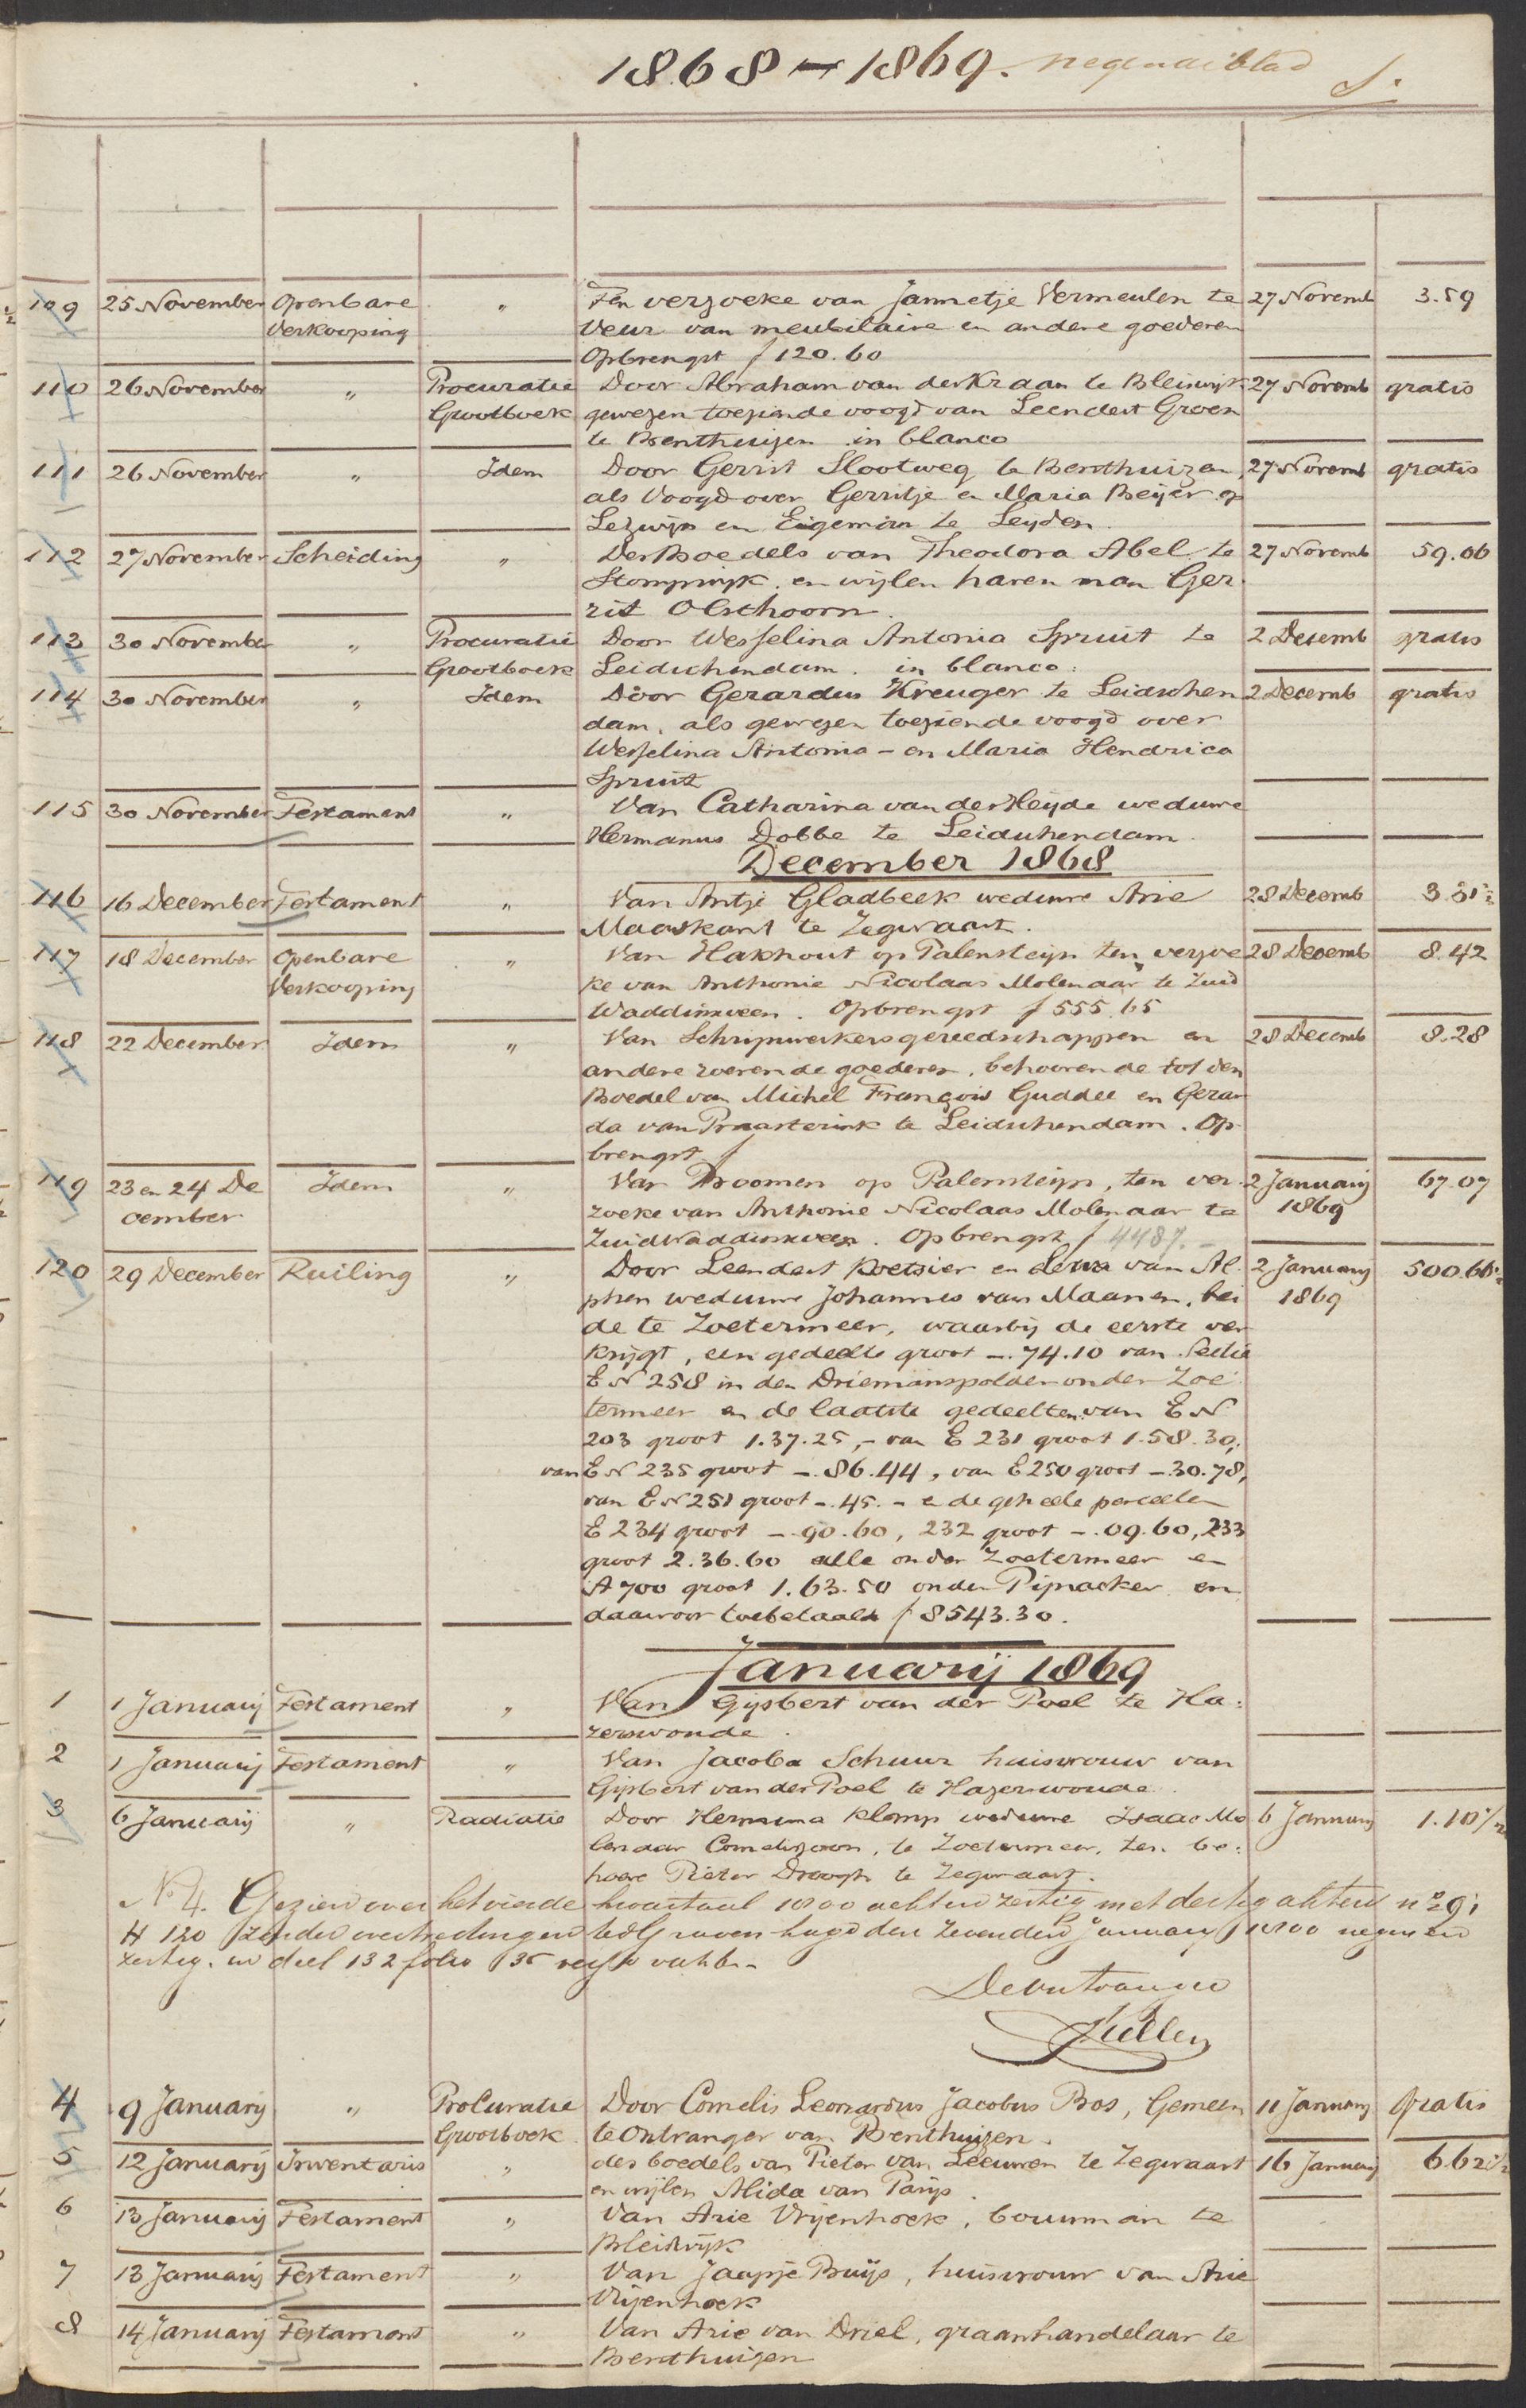 1868 - 1869.
109 25 November Openbare „ Ten verzoeke van Jannetje Vermeulen te 27 Novemb 3.59
Verkooping Veur van meubilaire en andere goederen
Opbrengst f 120.60
110 26 November „ Procuratie Door Abraham van der Kraan te Bleiswijk 27 Novemb gratis
Grootboek gewezen toeziende voogd van Leendert Groen
te Benthuizen in blanco
111 26 November „ Idem Door Gerrit Slootweg te Benthuizen, 27 Novemb gratis
als Voogd over Gerritje en Maria Beijer op
en te Leyden.
112 27 November Scheiding „ Des Boedels van Theodora Abel te 27 Novemb 59.06
Stompwijk, en wijlen haren man Ger
rit Olsthoorn.
113 30 November „ Procuratie Door Wesselina Antonia Spruit te 2 Decemb gratis
Grootboek Leidschendam. in blanco.
114 30 November „ Idem Door Gerardus Kreuger te Leidschen 2 Decemb gratis
dam, als gewezen toeziende voogd over
Wesselina Antonia - en Maria Hendrica
Spruit
115 30 November Testament „ Van Catharina van der Heijde weduwe
Hermanus Dobbe te Leidschendam.
December 1868
116 16 December Testament „ Van Antje Gladbeek weduwe Arie 28 Decemb 3.31½
Maaskant te Zegwaart.
117 18 December Openbare „ Van Hakhout op Palensteijn ten verzoe 28 Decemb 8.42
Verkooping ke van Anthonie Nicolaas Molenaar te Zuid
Waddinxveen. Opbrengst f 555.65
118 22 December Idem „ Van Schrijnwerkersgereedschappen en 28 Decemb 8.28
andere roerende goederen, behoorende tot den
Boedel van Michel François Guddee en Gerar
da van te Leidschendam. Op
brengst f
119 23 en 24 De Idem „ Van Boomen op Palensteijn, ten ver 2 Januarij 67.07
cember zoeke van Anthonie Nicolaas Molenaar te 1869
ZuidWaddinxveen. Opbrengst f 4487.-
120 29 December Ruiling „ Door Leendert Koetsier en van Al 2 Januarij 500.66½
phen weduwe Johannes van Maanen, bei 1869
de te Zoetermeer, waarbij de eerste ver
krijgt, een gedeelte groot -.74.10 van Sectie
E N 258 in den Driemanspolder onder Zoe
termeer en de laatste gedeelten van E N
203 groot 1.37.25, - van E 231 groot 1.58.30,
van E N 235 groot -.86.44, van E 250 groot -.30.78,
van E N 251 groot -.45.- en de geheele perceelen
E 234 groot -.90.60, 232 groot -.09.60, 233
groot 2.36.60 alle onder Zoetermeer en
A 700 groot 1.63.50 onder Pijnacker en
daarvoor toebetaald f 8543.30.
Januarij 1869
1 1 Januarij Testament „ Van Gijsbert van der Poel te Ha:
zerswoude.
2 1 Januarij Testament „ Van Jacoba Schuur huisvrouw van
Gijsbert van der Poel te Hazerswoude.
3 6 Januarij „ Radiatie Door Hermina Klomp weduwe Isaac Mo 6 Januarij 1.10½
lenaar Corneliszoon, te Zoetermeer, ten be:
hoeve Pieter Droogh te Zegwaart.
No 4. Gezien over het vierde kwartaal 1800 acht en zestig met dertig akten no 91
H 120 zonder overtredingen te 's Gravenhage den zevenden Januarij 1800 negen en
zestig. in deel 132 folio 35
De Ontvanger
4 9 Januarij „ Procuratie Door Cornelis Leonardus Jacobus Bos, Gemeen 11 Januarij Gratis
Grootboek te Ontvanger van Benthuizen.
5 12 Januarij Inventaris „ des boedels van Pieter van Leeuwen te Zegwaart 16 Januarij 6.62½
en wijlen Alida van Parijs.
6 13 Januarij Testament „ Van Arie Vrijenhoek, bouwman te
Bleiswijk
7 13 Januarij Testament „ Van Jaapje Buijs, huisvrouw van Arie
Vrijenhoek
8 14 Januarij Testament „ Van Arie van Driel, graanhandelaar te
Benthuizen